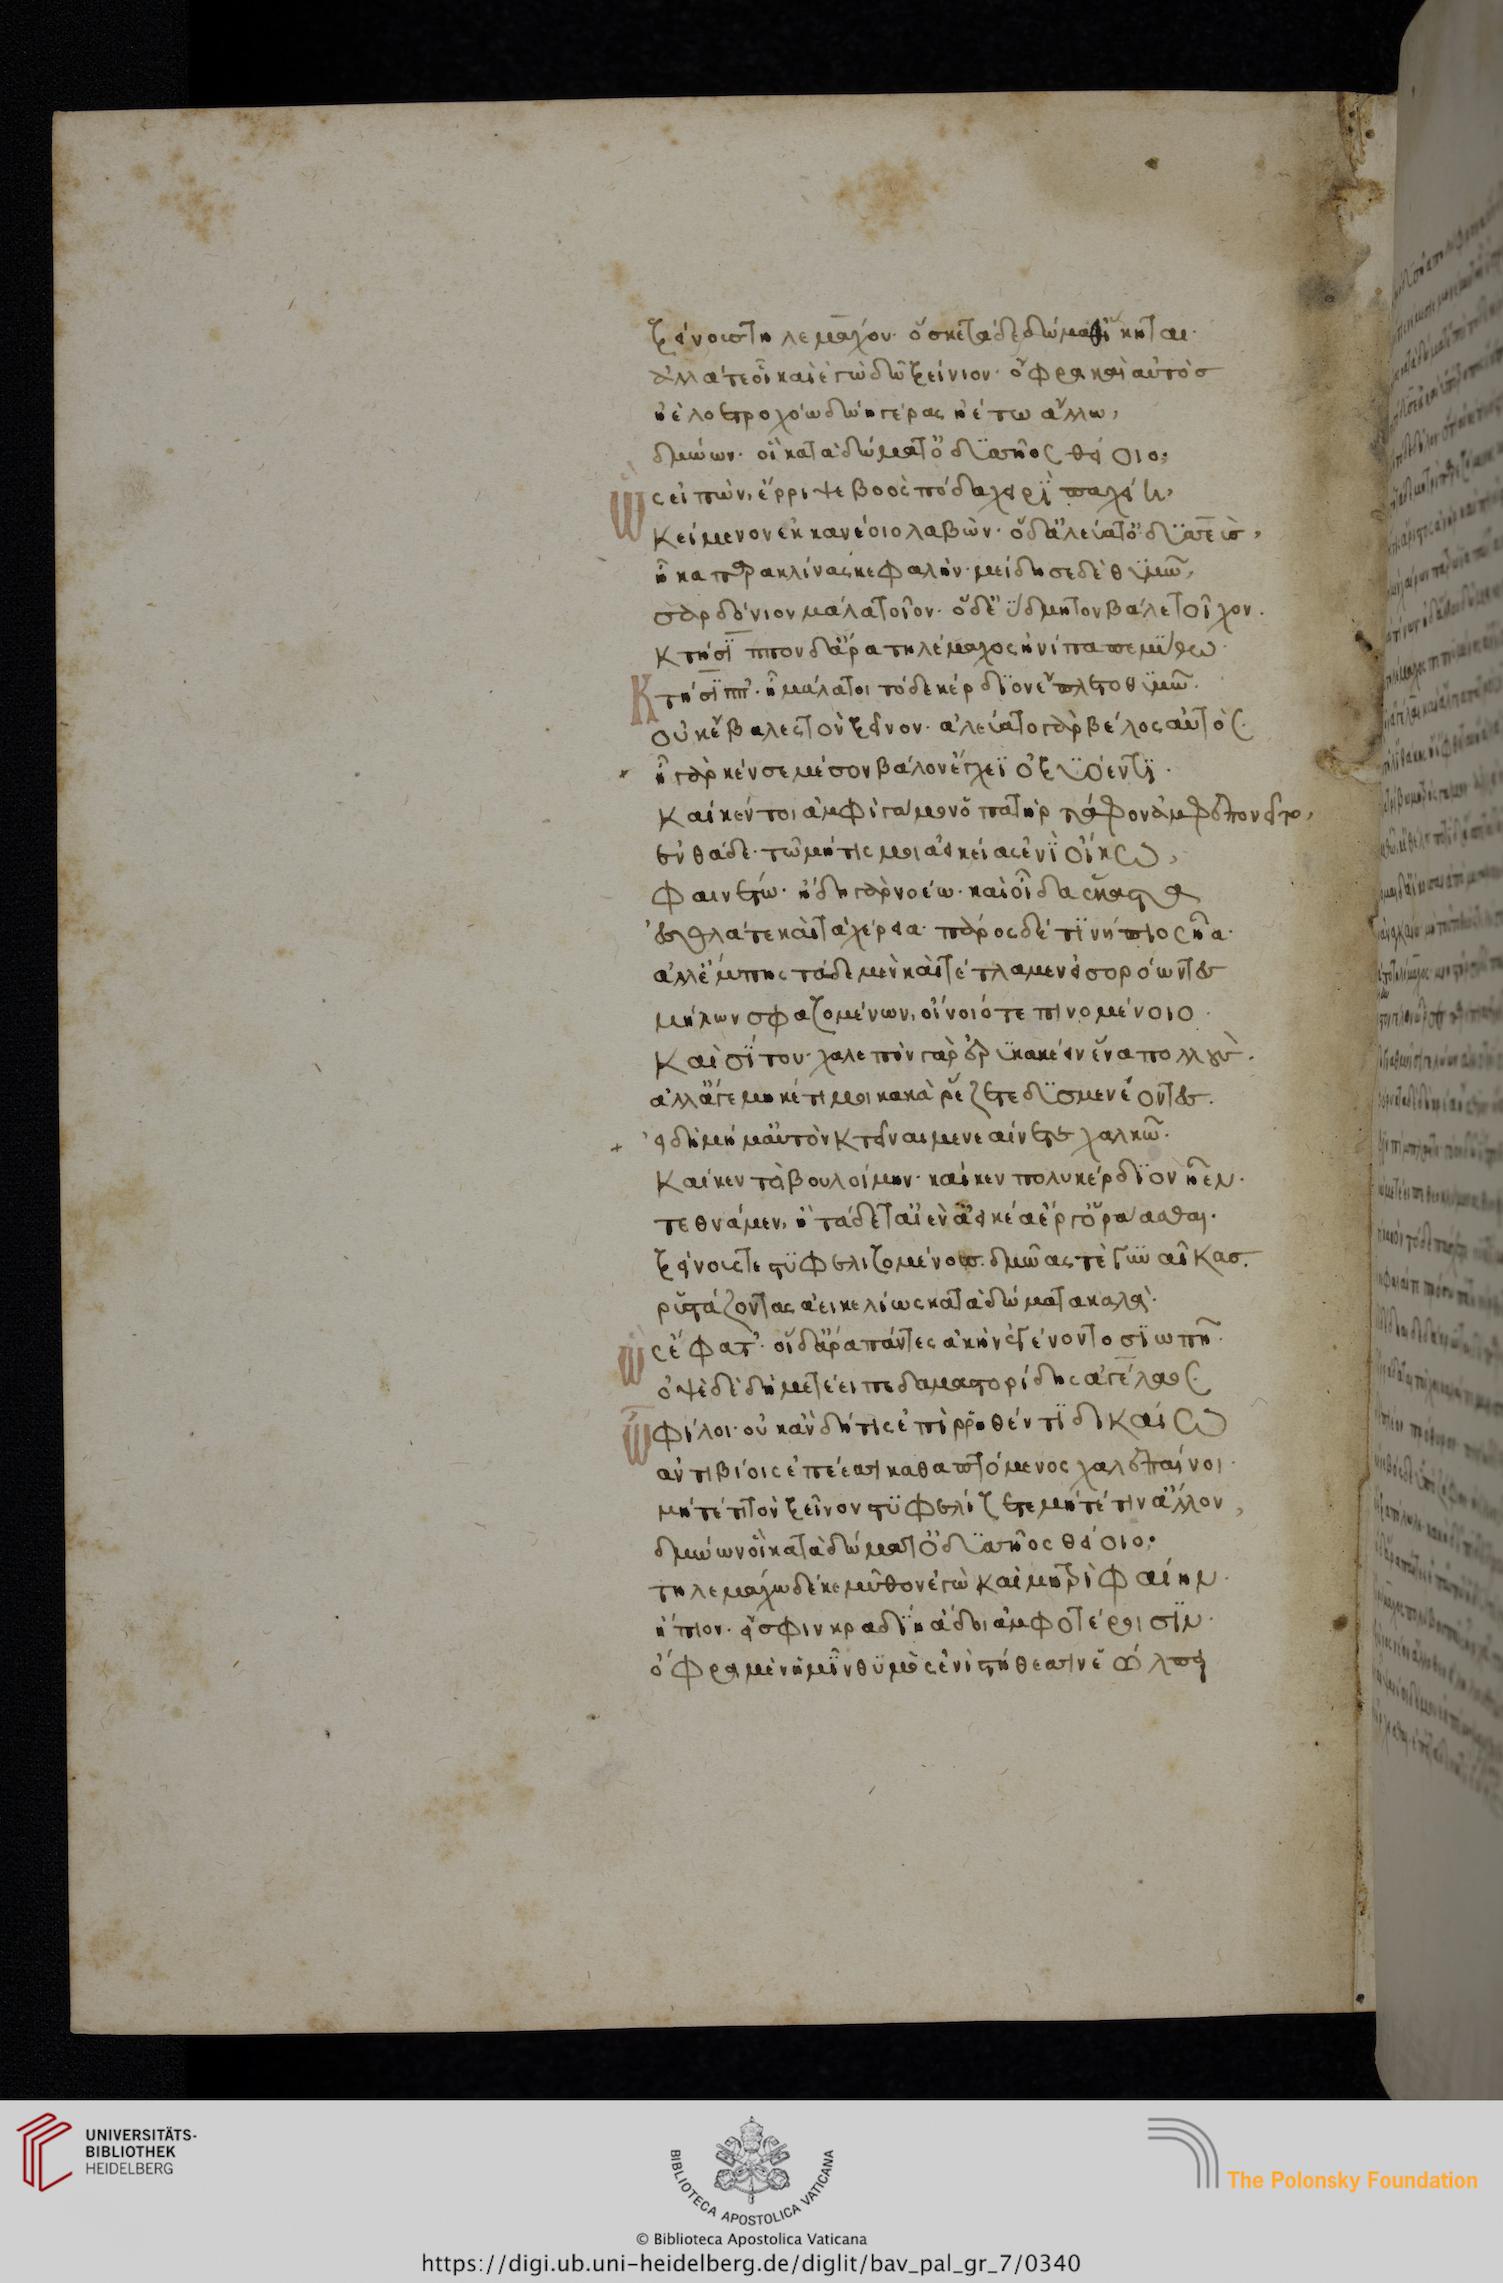 ξείνους τηλεμάχου· ὅς κε τάδε δώμαθ' ἵκηται·
ἀλλά τε οἱ καὶ ἐγὼ δῶ ξείνιον· ὄφρα καὶ αὐτὸς
ἠὲ λοετροχόω δώη γέρας ἠέ τω ἄλλω,
δμώων· οἳ κατὰ δώματ' ὀδυσσῆος θείοιο·
ὣς εἰπὼν, ἔρριψε βοὸς πόδα χειρὶ παχείη,
κείμενον ἐκ κανέοιο λαβὼν· ὁ δ' ἀλεύατ' ὀδυσσεὺς,
ἦκα παρακλίνας κεφαλὴν· μείδησε δὲ θυμῶ,
σαρδόνιον μάλα τοῖον· ὁ δ' εὔδμητον βάλε τοῖχον·
κτήσιππον δ' ἄρα τηλέμαχος ἠνίπαπε μύθω·
κτήσιππ'· ἦ μάλα τοι τόδε κέρδιον ἔπλετο θυμῶ·
οὐκ ἔβαλες τὸν ξεῖνον· ἀλεύατο γὰρ βέλος αὐτὸς·
ἦ γὰρ κέν σε μέσον βάλον ἔγχεϊ ὀξυόεντι·
καί κέν τοι ἀμφὶ γάμοιο πατὴρ τάφον ἀμφεπονεῖτο,
ἐνθάδε· τῶ μή τις μοι ἀεικείας ἐνὶ οἴκω,
φαινέτω· ἤδη γὰρ νοέω· καὶ οἶδα ἕκαστα
ἐσθλά τε καὶ τὰ χέρεια· πάρος δέ τι νήπιος ἦα·
ἀλλ' ἔμπης τάδε μὲν καὶ τέτλαμεν εἰσορόωντες
μήλων σφαζομένων, οἴνοιό τε πινομένοιο·
καὶ σίτου· χαλεπὸν γὰρ ἐρυκακέειν ἕνα πολλοὺς·
ἀλλ' ἄγε μηκέτι μοι κακὰ ῥέζετε δυσμενέοντες·
εἰ δ' ἤδη μ' αὐτὸν κτεῖναι μενεαίνετε χαλκῶ·
καί κεν τὸ βουλοίμην· καί κεν πολὺ κέρδιον ἦεν·
τεθνάμεν, ἢ τάδε γ' αἰὲν ἀεικέα ἔργ' ὁράασθαι·
ξείνους τε στυφελιζομένους· δμωάς τε γυναῖκας·
ῥυστάζοντας ἀεικελίως κατὰ δώματα καλὰ·
ὣς ἔφατ'· οἱ δ' ἄρα πάντες ἀκὴν ἐγένοντο σιωπῆ·
ὀψὲ δὲ δὴ μετέειπε δαμαστορίδης ἀγέλαος·
ὦ φίλοι· οὐκ ἂν δή τις ἐπὶ ῥηθέντι δικαίω
ἀντιβίοις ἐπέεσσι καθαπτόμενος χαλεπαίνοι·
μήτέ τι τὸν ξεῖνον στυφελίζετε μήτέ τιν' ἄλλον,
δμώων οἳ κατὰ δώματ' ὀδυσσῆος θείοιο·
τηλεμάχω δέ κε μῦθον ἐγὼ καὶ μητρὶ φαίην·
ἤπιον· εἴ σφιν κραδίη ἅδοι ἀμφοτέροισιν·
ὄφρα μὲν ἡμῖν θυμὸς ἐνὶ στήθεσσιν ἐώλπει
UNIVERSITÄTS-
BIBLIOTHEK
HEIDELBERG
BIBLIOTECA APOSTOLICA VATICANA
The Polonsky Foundation
© Biblioteca Apostolica Vaticana
https://digi.ub.uni-heidelberg.de/diglit/bav_pal_gr_7/0340